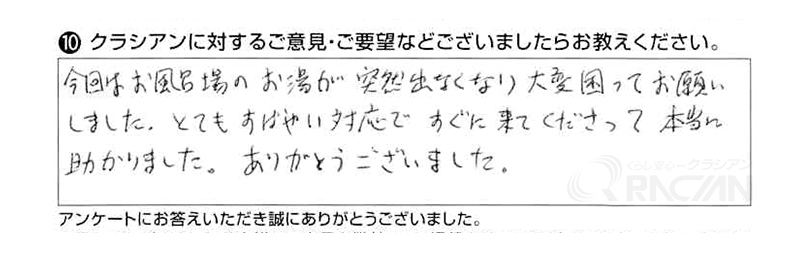 ⑩ クラシアンに対するご意見・ご要望などございましたらお教えください。
今回はお風呂場のお湯が突然出なくなり大変困ってお願い
しました。とてもすばやい対応ですぐに来てくださって本当に
助かりました。ありがとうございました。
くらし安心クラシアン
QRACIAN
アンケートにお答えいただき誠にありがとうございました。